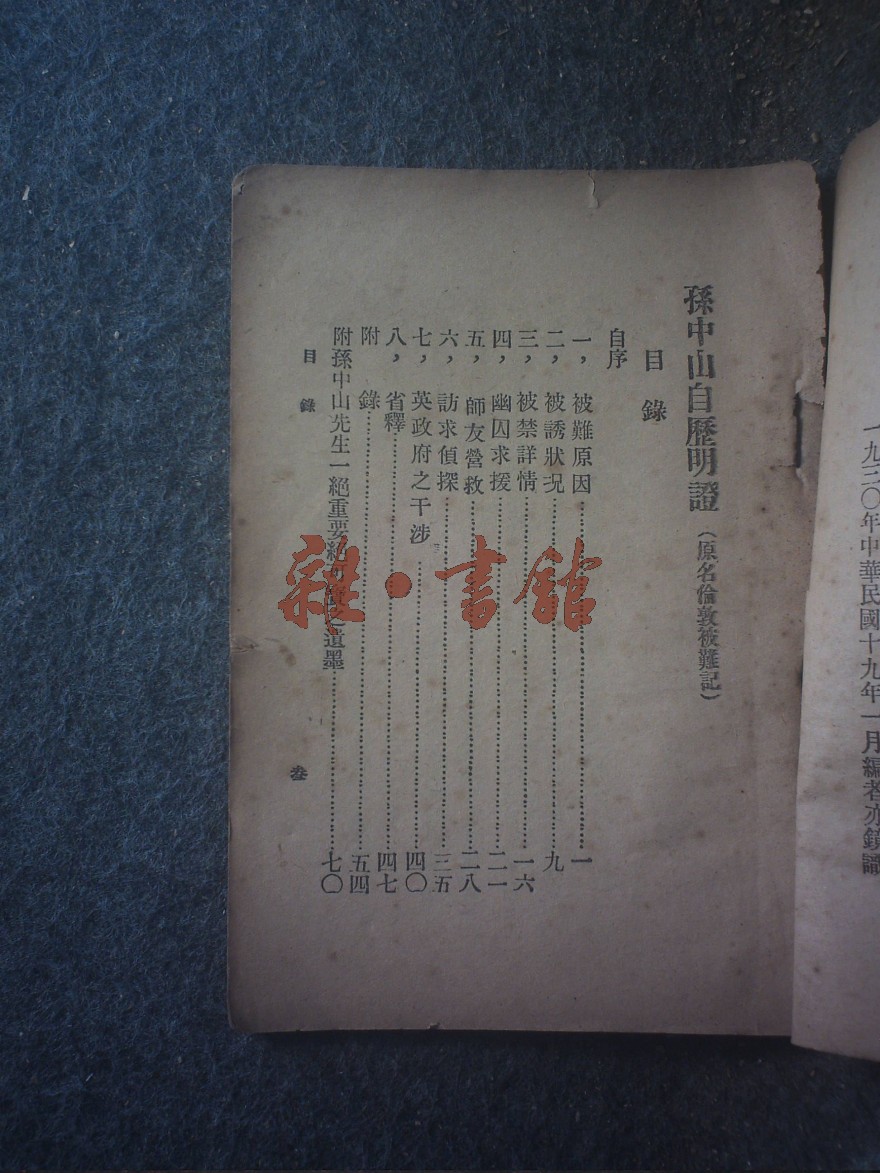 一九三〇年中華民國十九年一月編者亦鏡識
孫中山自歷明證（原名倫敦被難記）
目錄
自序
一，被難原因……一
二，被誘狀況……九
三，被禁詳情……一六
四，幽囚求援……二一
五，師友營救……二八
六，訪求偵探……三五
七，英政府之干涉……四〇
八，省釋……四七
附錄……五四
附孫中山先生一絕重要絕可之遺墨……七〇
目錄
叁
雜·書舘